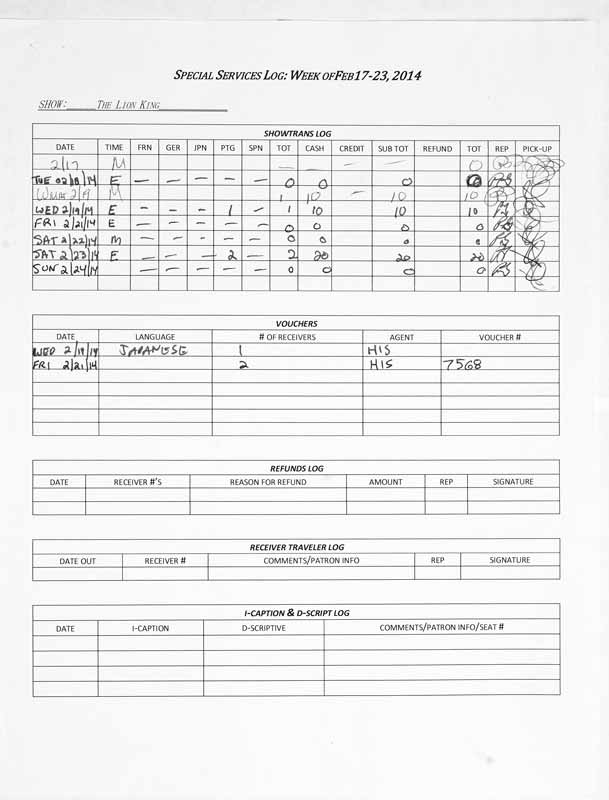 SPECIAL SERVICES LOG: WEEK OF FEB 17-23, 2014
SHOW: THE LION KING
SHOWTRANS LOG
DATE TIME FRN GER JPN PTG SPN TOT CASH CREDIT SUB TOT REFUND TOT REP PICK-UP
2/17 M — — — 0
TUE 02/18/14 E — — — — — 0 0 0 0
M 1 10 — 10 10
WED 2/19/14 E — — — 1 — 1 10 10 10
FRI 2/21/14 E — — — — — 0 0 0 0
SAT 2/22/14 M — — — — — 0 0 0 0
SAT 2/23/14 E — — — 2 — 2 20 20 20
SUN 2/24/14 — — — — — 0 0 0 0
VOUCHERS
DATE LANGUAGE # OF RECEIVERS AGENT VOUCHER #
WED 2/19/14 JAPANESE 1 HIS
FRI 2/21/14 2 HIS 7568
REFUNDS LOG
DATE RECEIVER #'S REASON FOR REFUND AMOUNT REP SIGNATURE
RECEIVER TRAVELER LOG
DATE OUT RECEIVER # COMMENTS/PATRON INFO REP SIGNATURE
I-CAPTION & D-SCRIPT LOG
DATE I-CAPTION D-SCRIPTIVE COMMENTS/PATRON INFO/SEAT #